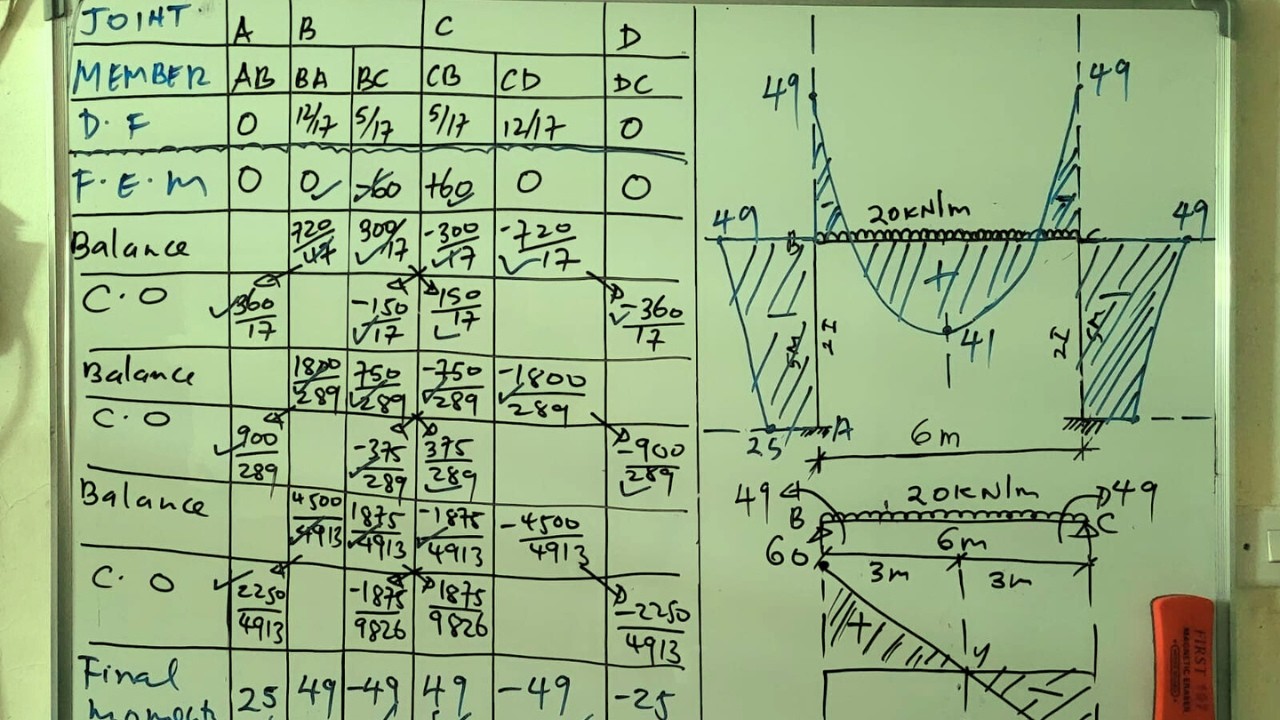 JOINT A B C D
MEMBER AB BA BC CB CD DC
D.F 0 12/17 5/17 5/17 12/17 0
F.E.M 0 0 -60 +60 0 0
Balance 720/17 300/17 -300/17 -720/17
C.O 360/17 -150/17 150/17 -360/17
Balance 1800/289 750/289 -750/289 -1800/289
C.O 900/289 -375/289 375/289 -900/289
Balance 4500/4913 1875/4913 -1875/4913 -4500/4913
C.O 2250/4913 -1875/9826 1875/9826 -2250/4913
Final 25 49 -49 49 -49 -25
Moments
49 49
20kN/m
49 B C 49
+
-
-
-
41
5m 2I 2I 5m
25 A
6m
49 20kN/m 49
B C
60 6m
3m 3m
+ y
-
FIRST
MAGNETIC ERASER